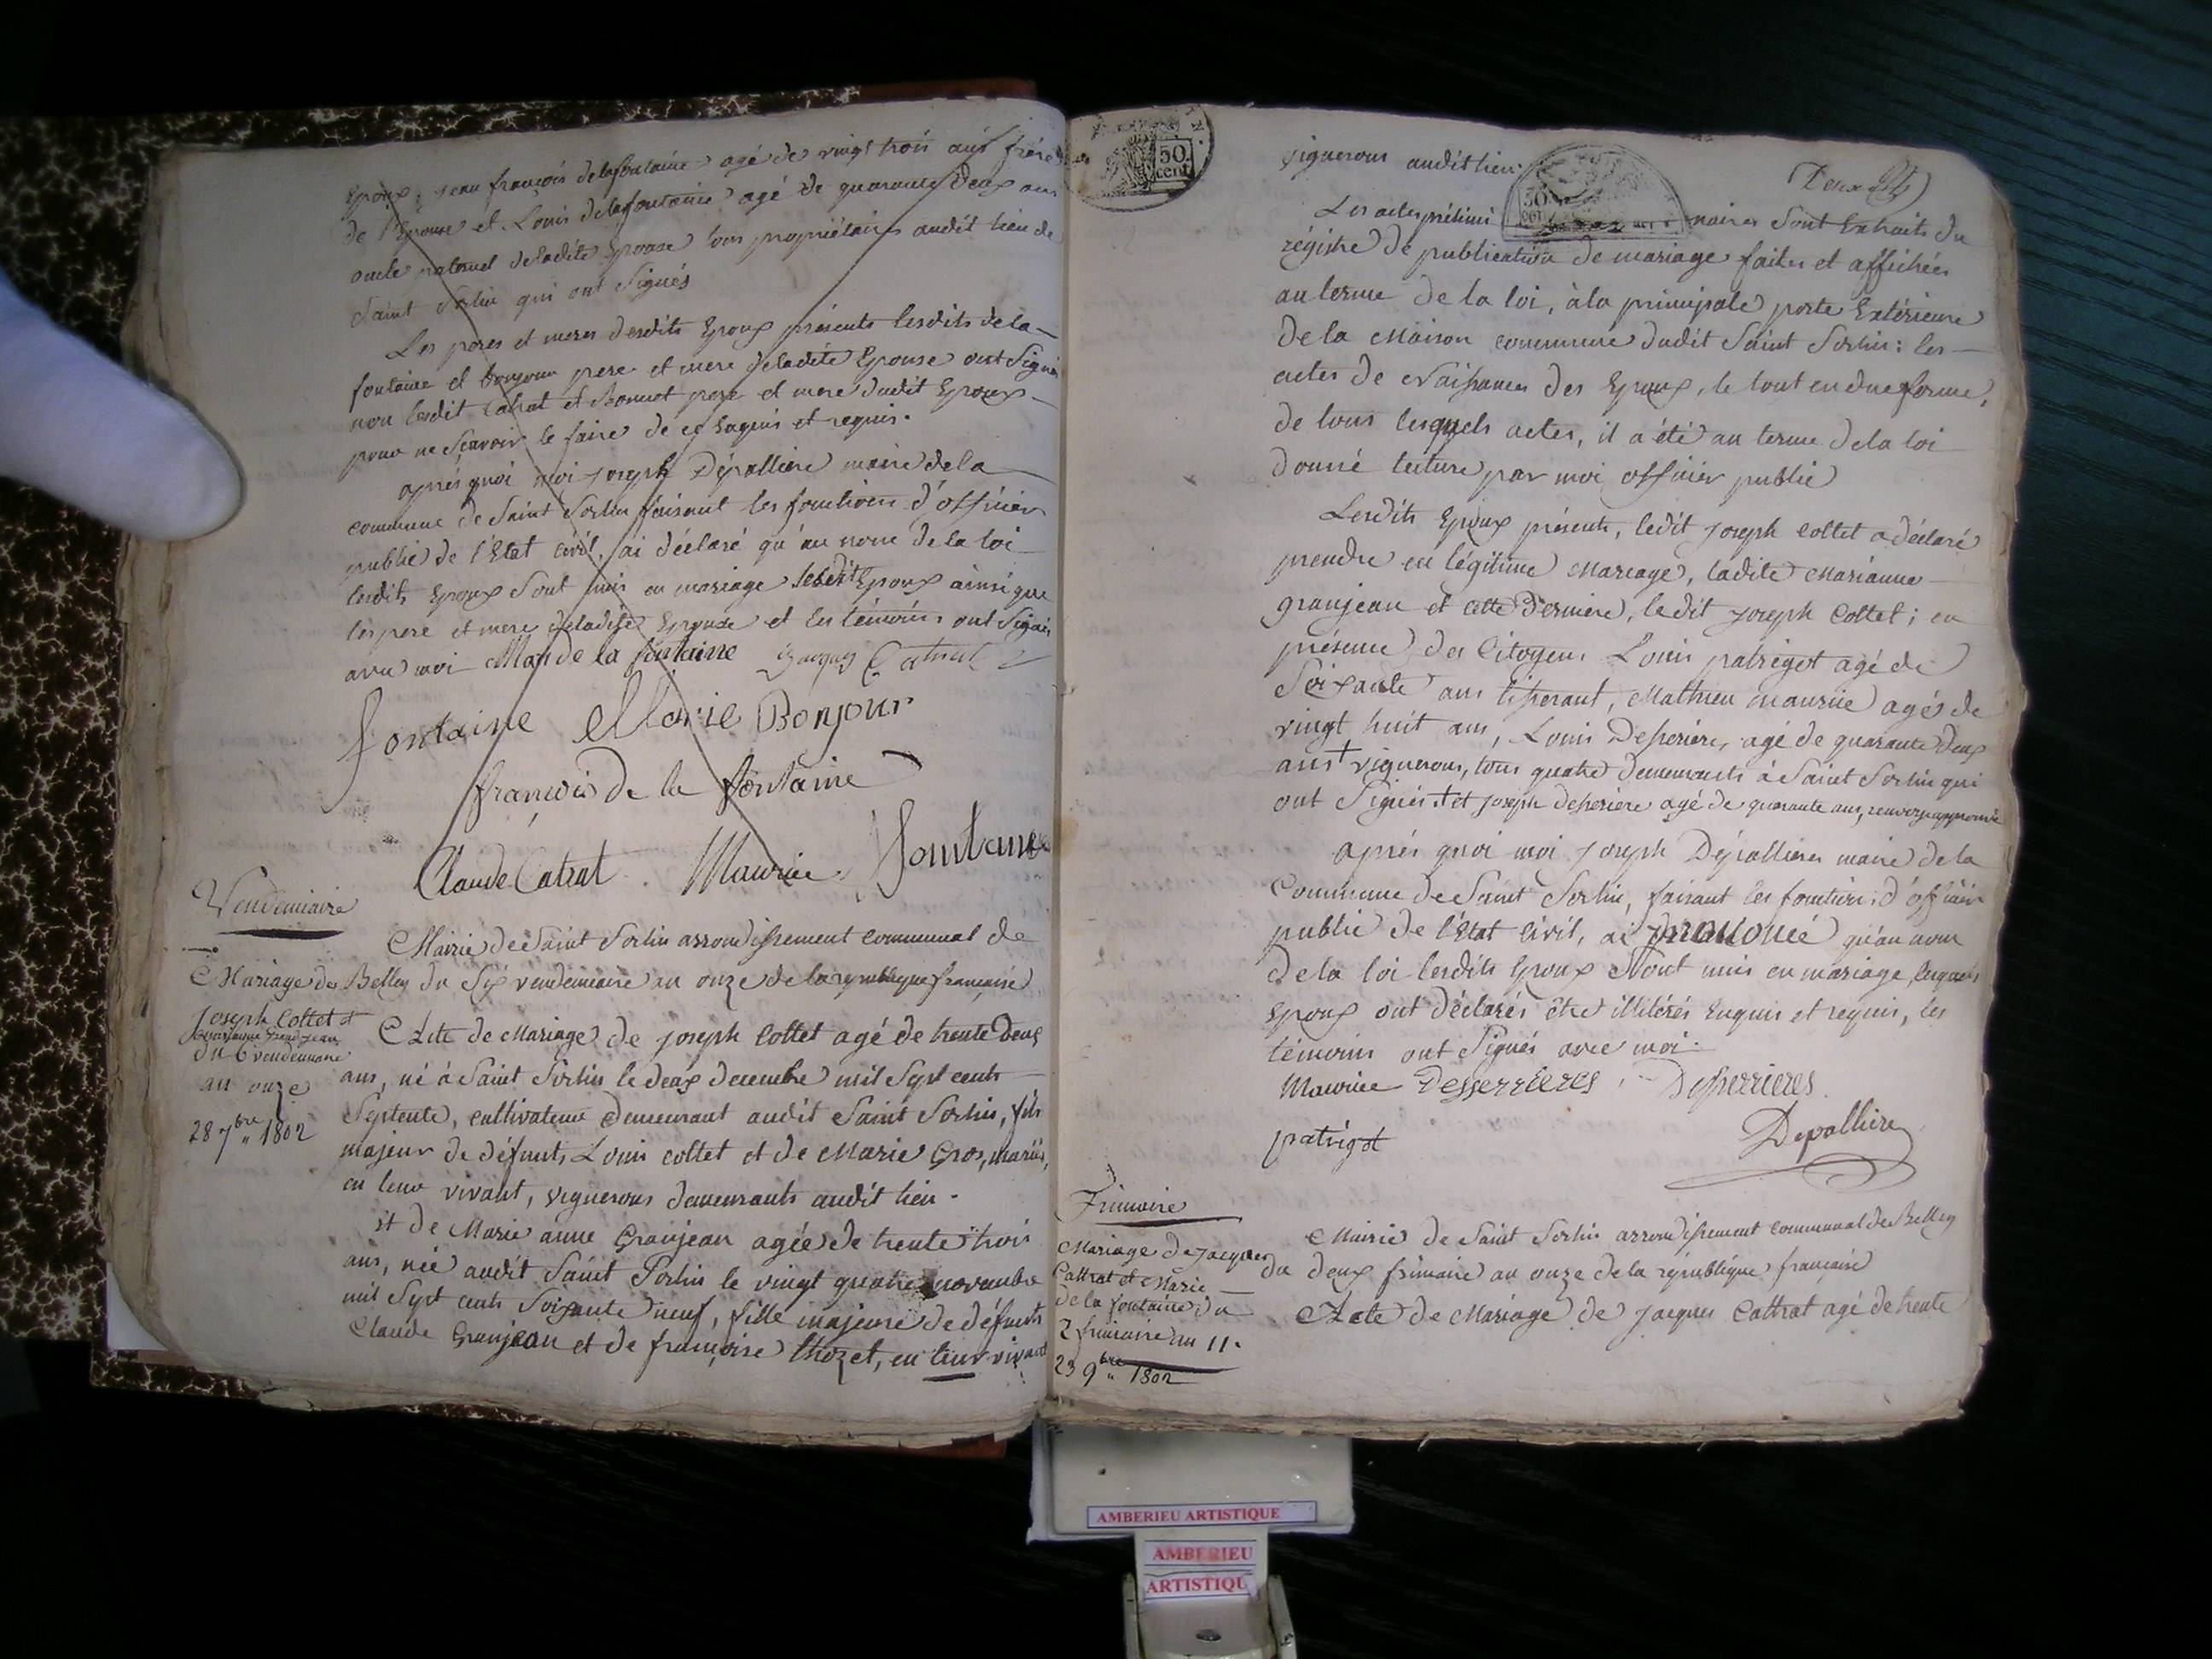 Epoux, jean françois delafontaine agé de vingt trois ans frère
de l'Epouse et Louis delafontaine agé de quarante deux ans
oncle paternel deladite Epouse tous propriétaires audit lieu de
Saint Sorlin qui ont Signés
Les peres et meres desdits Epoux présents lesdits dela-
fontaine et bonjour pere et mere deladite Epouse ont Signés
non lesdit Catrat et Bonnet pere et mere dudit Epoux
pour ne Sçavoir le faire de ce Enquis et requis.
après quoi moi joseph Dépalliere maire dela
commune de Saint Sorlin faisant les fonctions d'officier
public de l'Etat Civil, ai déclaré qu'au nom de la loi
lesdits Epoux Sont unis en mariage lesdit Epoux ainsi que
les pere et mere deladite Epouse et les témoins ont Signés
avec moi Marie de la fontaine Jacques Catrat
fontaine Marie Bonjour
françois De la fontaine
Claude Catrat Maurice fontaine
Vendemiaire
Mairie de Saint Sorlin arrondissement communal de
Belley du Six vendemiaire an onze de la republique française
Mariage de
Joseph Cottet et
Marianne Grandjean
du 6 vendemiaire
an onze
28 7bre 1802
Acte de Mariage de joseph Cottet agé de trente deux
ans, né à Saint Sorlin le deux decembre mil Sept cents
Septente, cultivateur demeurant audit Saint Sorlin, fils
majeur de défunts Louis cottet et de Marie Gros, mariés,
en leur vivant, vignerons demeurants audit lieu.
Et de Marie anne Granjean agée de trente trois
ans, née audit Saint Sorlin le vingt quatre novembre
mil Sept cents Soixante neuf, fille majeure de défunts
Claude Granjean et de françoise thozet, en leur vivant
50 cent
vignerons audit lieu.
Deux
Les actes préliminaires Sont Extraits du
régistre de publication de mariage faites et affichées
au terme de la loi, à la principale porte Extérieure
de la Maison commune dudit Saint Sorlin: les
actes de Naissances des Epoux, le tout en due forme,
de tous lesquels actes, il a été au terme dela loi
donné lecture par moi officier public
Lesdits Epoux présents, ledit joseph Cottet a déclaré
prendre en légitime Mariage, ladite Marianne
granjean et cette dernière, ledit joseph Cottet; en
présence des Citoyens Louis patrigot agé de
Soixante ans tisserant, Mathieu Maurice agés de
vingt huit ans, Louis Desserière, agé de quarante deux
ans + vignerons, tous quatre demeurants à Saint Sorlin qui
ont Signés. + et joseph desserière agé de quarante ans, renvoye approuvé
après quoi moi Joseph Dépalliere maire de la
Commune de Saint Sorlin, faisant les fonctions d'officier
public de l'Etat Civil, ai prononcé qu'au nom
de la loi lesdits Epoux Sont unis en mariage, lesquels
Epoux ont déclarés être illitérés Enquis et requis, les
témoins ont Signés avec moi.
Maurice Desserrieres Desserrieres
patrigot Depalliere
Frimaire
Mariage de Jacques
Cattrat et Marie
de la fontaine du
2 frimaire an 11.
23 9bre 1802
Mairie de Saint Sorlin arrondissement communal de Belley
du deux frimaire an onze de la république française
Acte de Mariage de jacques Cattrat agé de trente
AMBERIEU ARTISTIQUE
AMBERIEU
ARTISTIQU